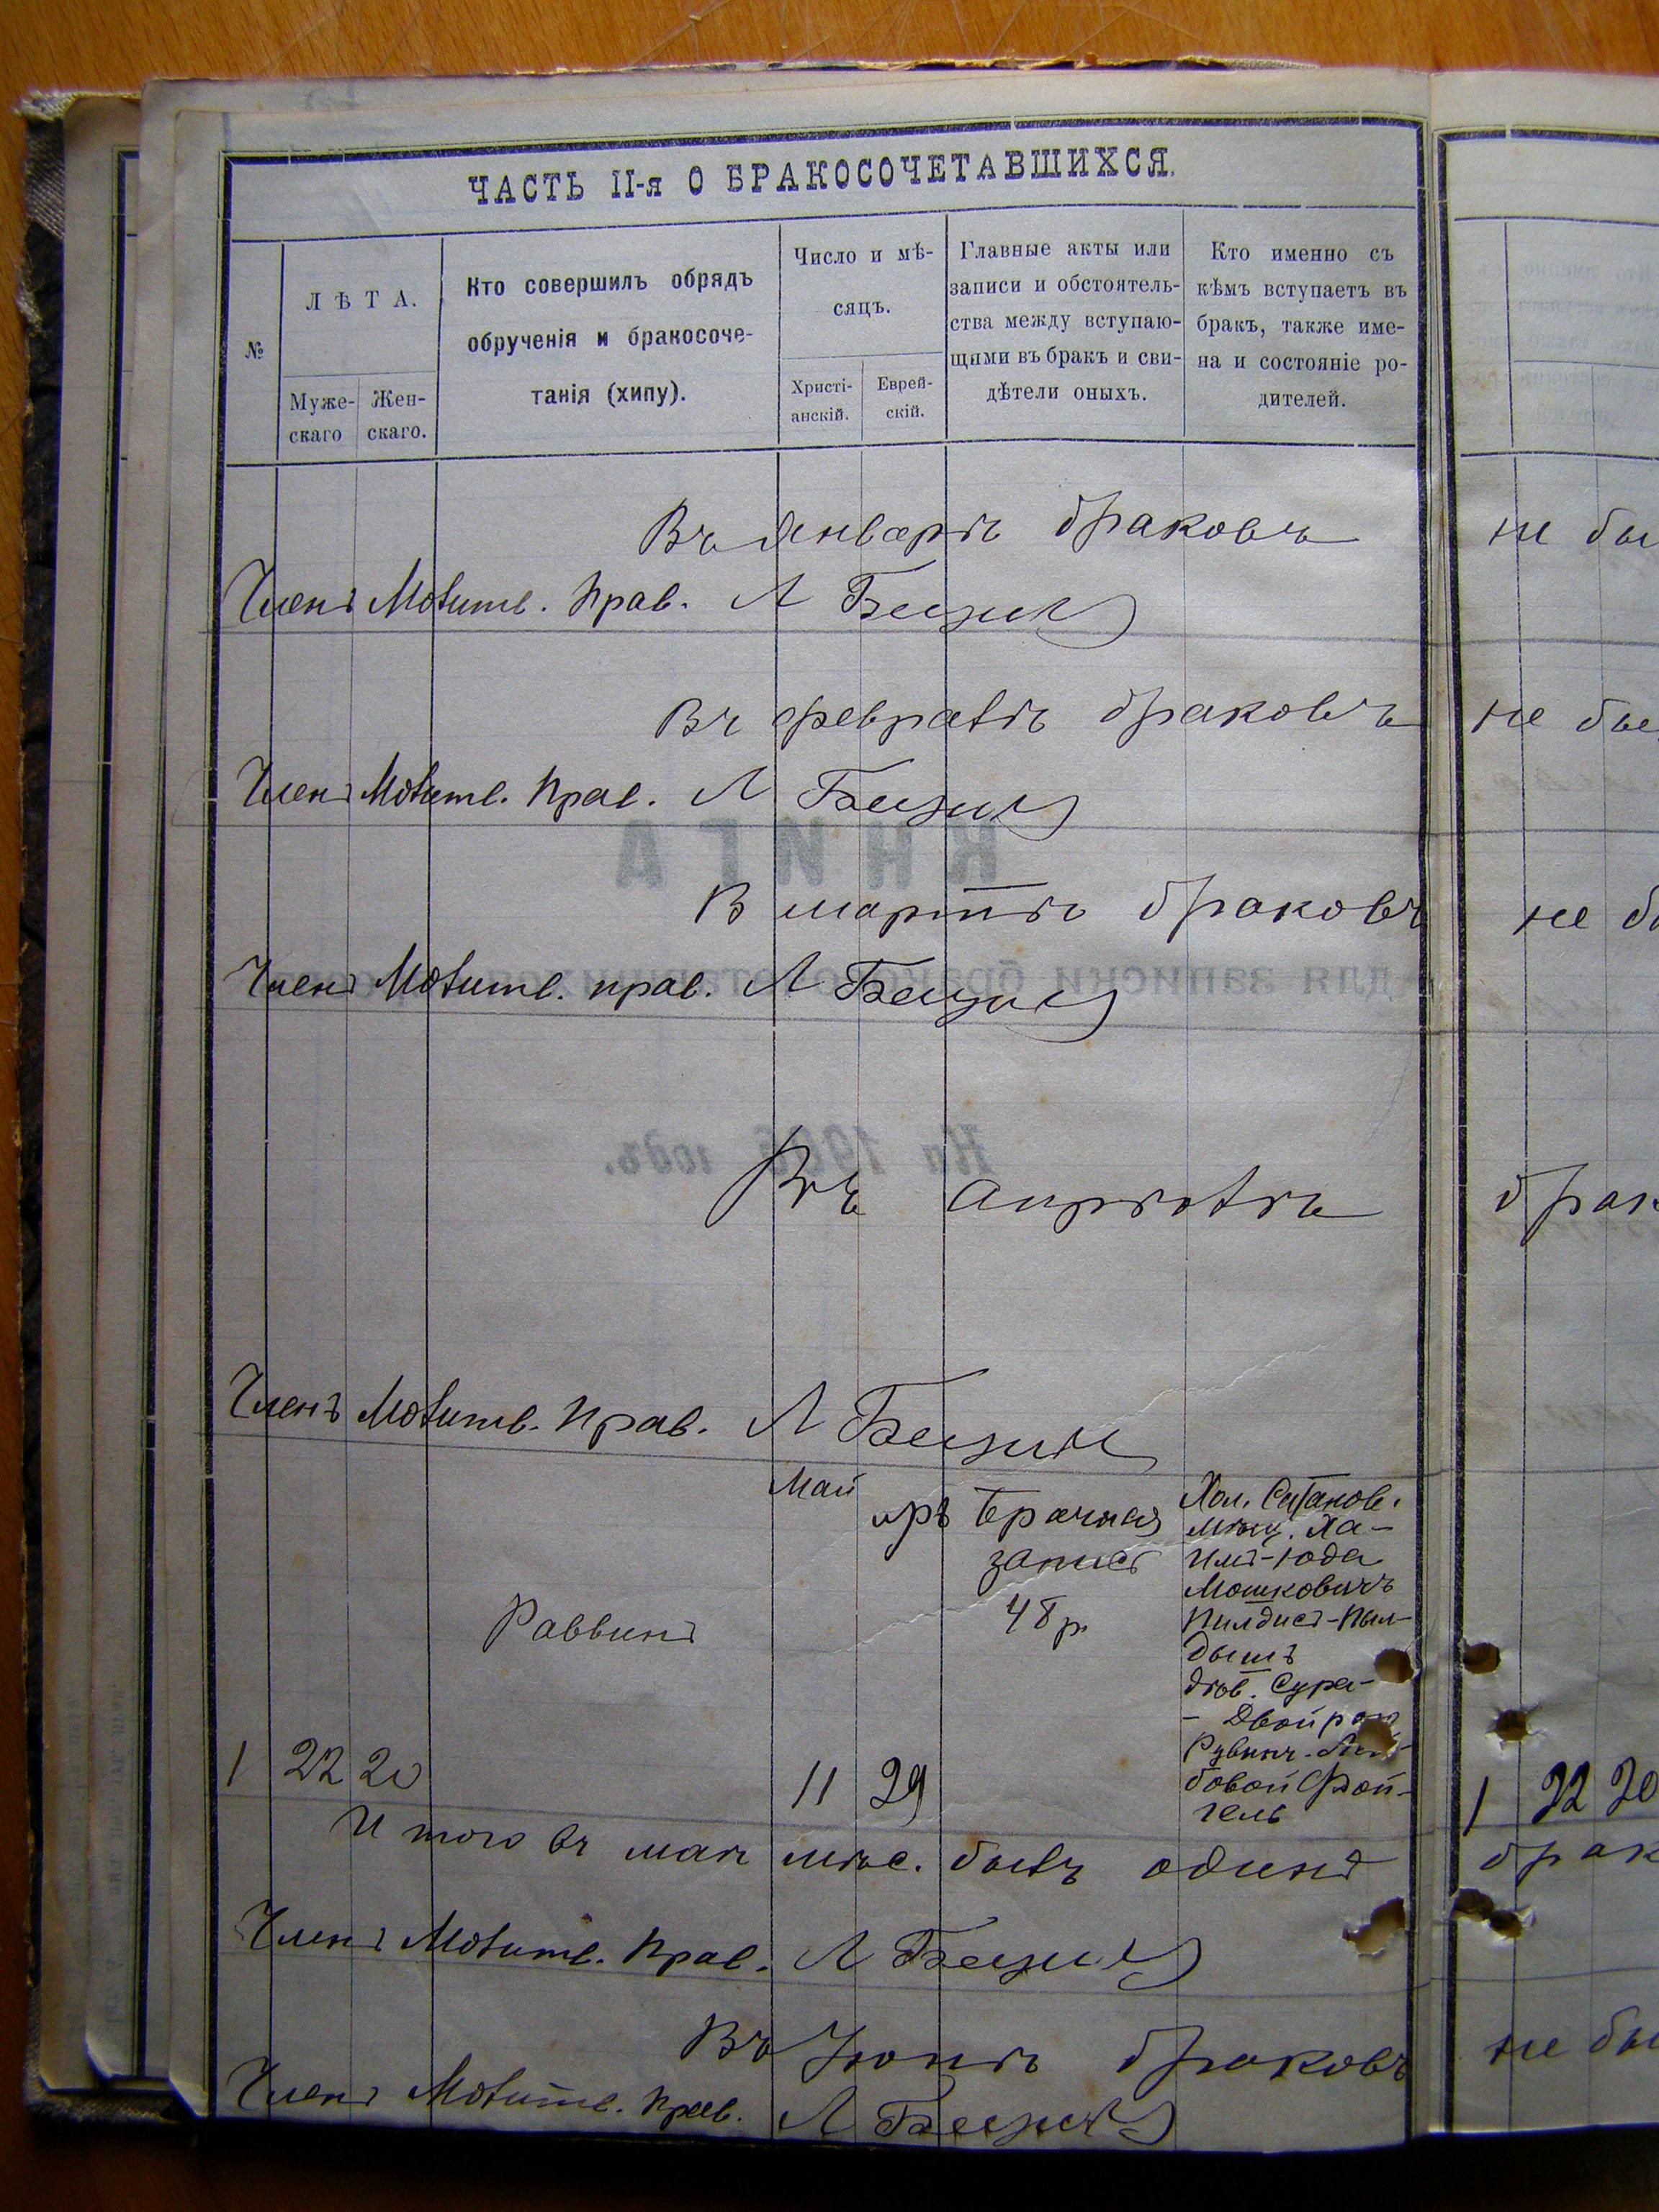 ЧАСТЬ II-я О БРАКОСОЧЕТАВШИХСЯ.
№
ЛѢТА.
Муже-
скаго
Жен-
скаго.
Кто совершилъ обрядъ
обрученія и бракосоче-
танія (хипу).
Число и мѣ-
сяцъ.
Христі-
анскій.
Еврей-
скій.
Главные акты или
записи и обстоятель-
ства между вступаю-
щими въ бракъ и сви-
дѣтели оныхъ.
Кто именно съ
кѣмъ вступаетъ въ
бракъ, также име-
на и состояніе ро-
дителей.
Въ Январѣ браковъ не бы
Членъ Молитв. Прав. Л
Въ февралѣ браковъ не бы
Членъ Молитв. Прав. Л
В мартѣ браковъ не бы
Членъ Молитв. прав. Л
Въ апрѣлѣ брак
Членъ Молитв. Прав. Л
Май
иръ
Брачная
запись
48 р.
Раввинъ
Хол.
мѣщ. Ха-
имъ-Юда
Мошковичъ
дѣв. Сура-
- Двойра
1 22 20 11 29
1 22 20
Итого въ маѣ мѣс. былъ одинъ брак
Членъ Молитв. Прав. Л
Въ Іюнѣ браковъ не бы
Членъ Молитв. Прав. Л
КНИГА
для записки бракосочетавшихся
На 190 годъ.